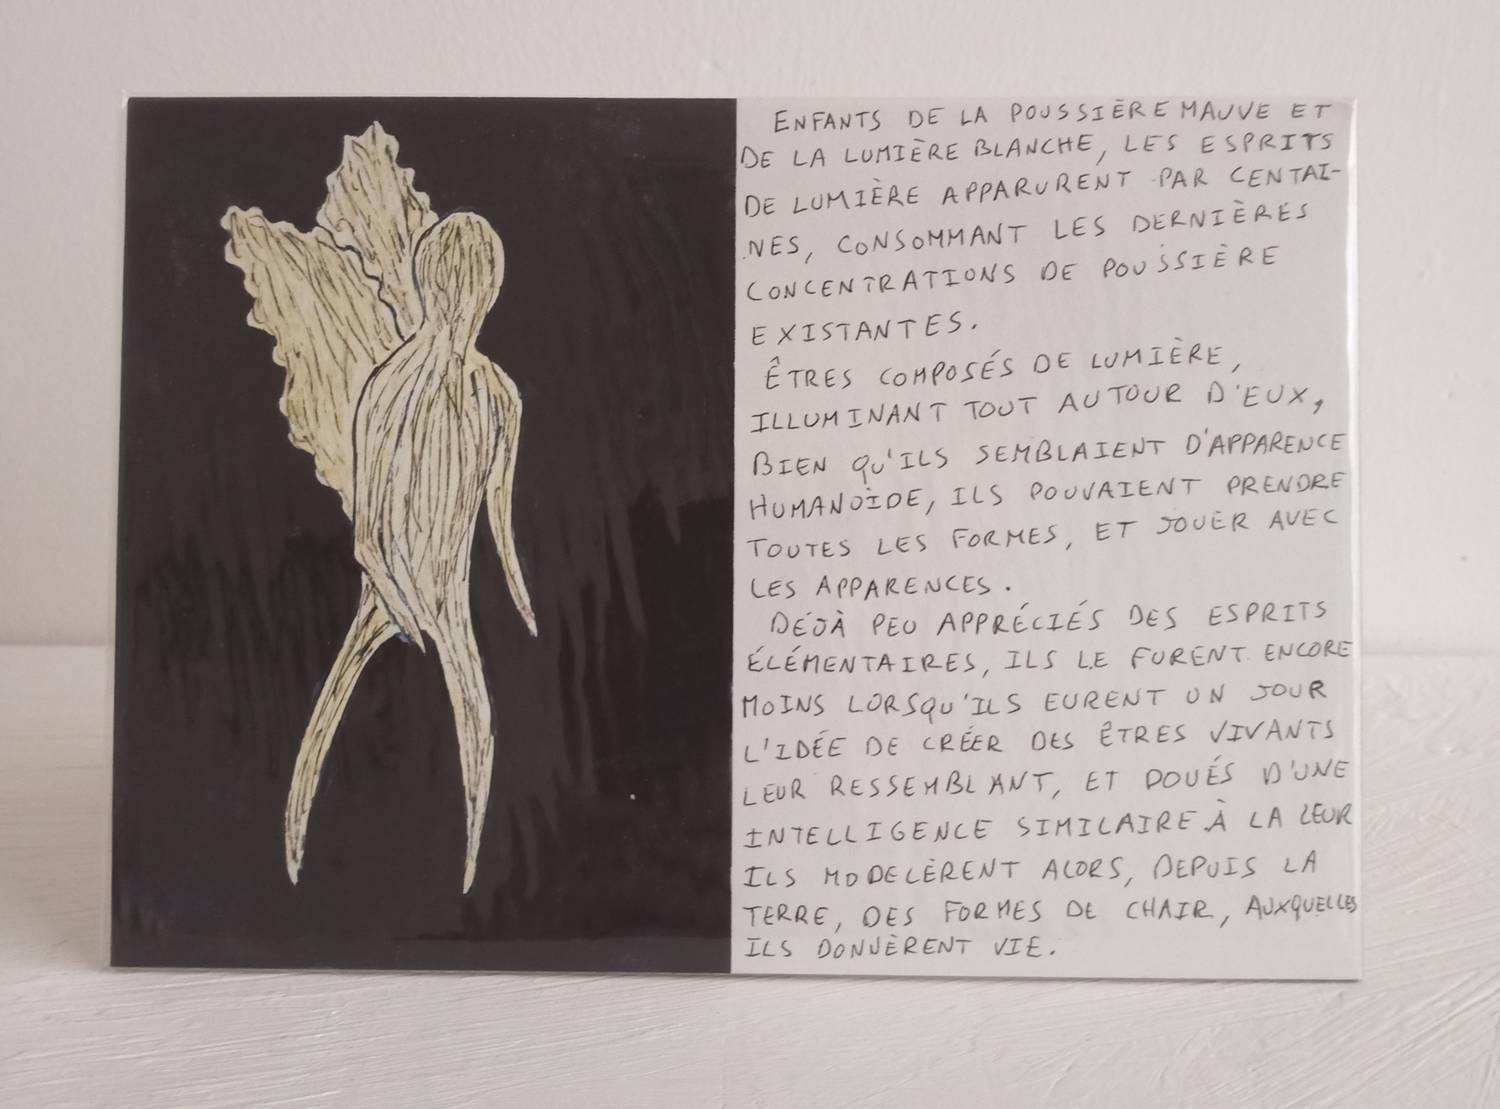 ENFANTS DE LA POUSSIÈRE MAUVE ET
DE LA LUMIÈRE BLANCHE, LES ESPRITS
DE LUMIÈRE APPARURENT PAR CENTAI-
NES, CONSOMMANT LES DERNIÈRES
CONCENTRATIONS DE POUSSIÈRE
EXISTANTES.
ÊTRES COMPOSÉS DE LUMIÈRE,
ILLUMINANT TOUT AUTOUR D'EUX,
BIEN QU'ILS SEMBLAIENT D'APPARENCE
HUMANOÏDE, ILS POUVAIENT PRENDRE
TOUTES LES FORMES, ET JOUER AVEC
LES APPARENCES.
DÉJÀ PEU APPRÉCIÉS DES ESPRITS
ÉLÉMENTAIRES, ILS LE FURENT ENCORE
MOINS LORSQU'ILS EURENT UN JOUR
L'IDÉE DE CRÉER DES ÊTRES VIVANTS
LEUR RESSEMBLANT, ET DOUÉS D'UNE
INTELLIGENCE SIMILAIRE À LA LEUR
ILS MODELÈRENT ALORS, DEPUIS LA
TERRE, DES FORMES DE CHAIR, AUXQUELLES
ILS DONNÈRENT VIE.